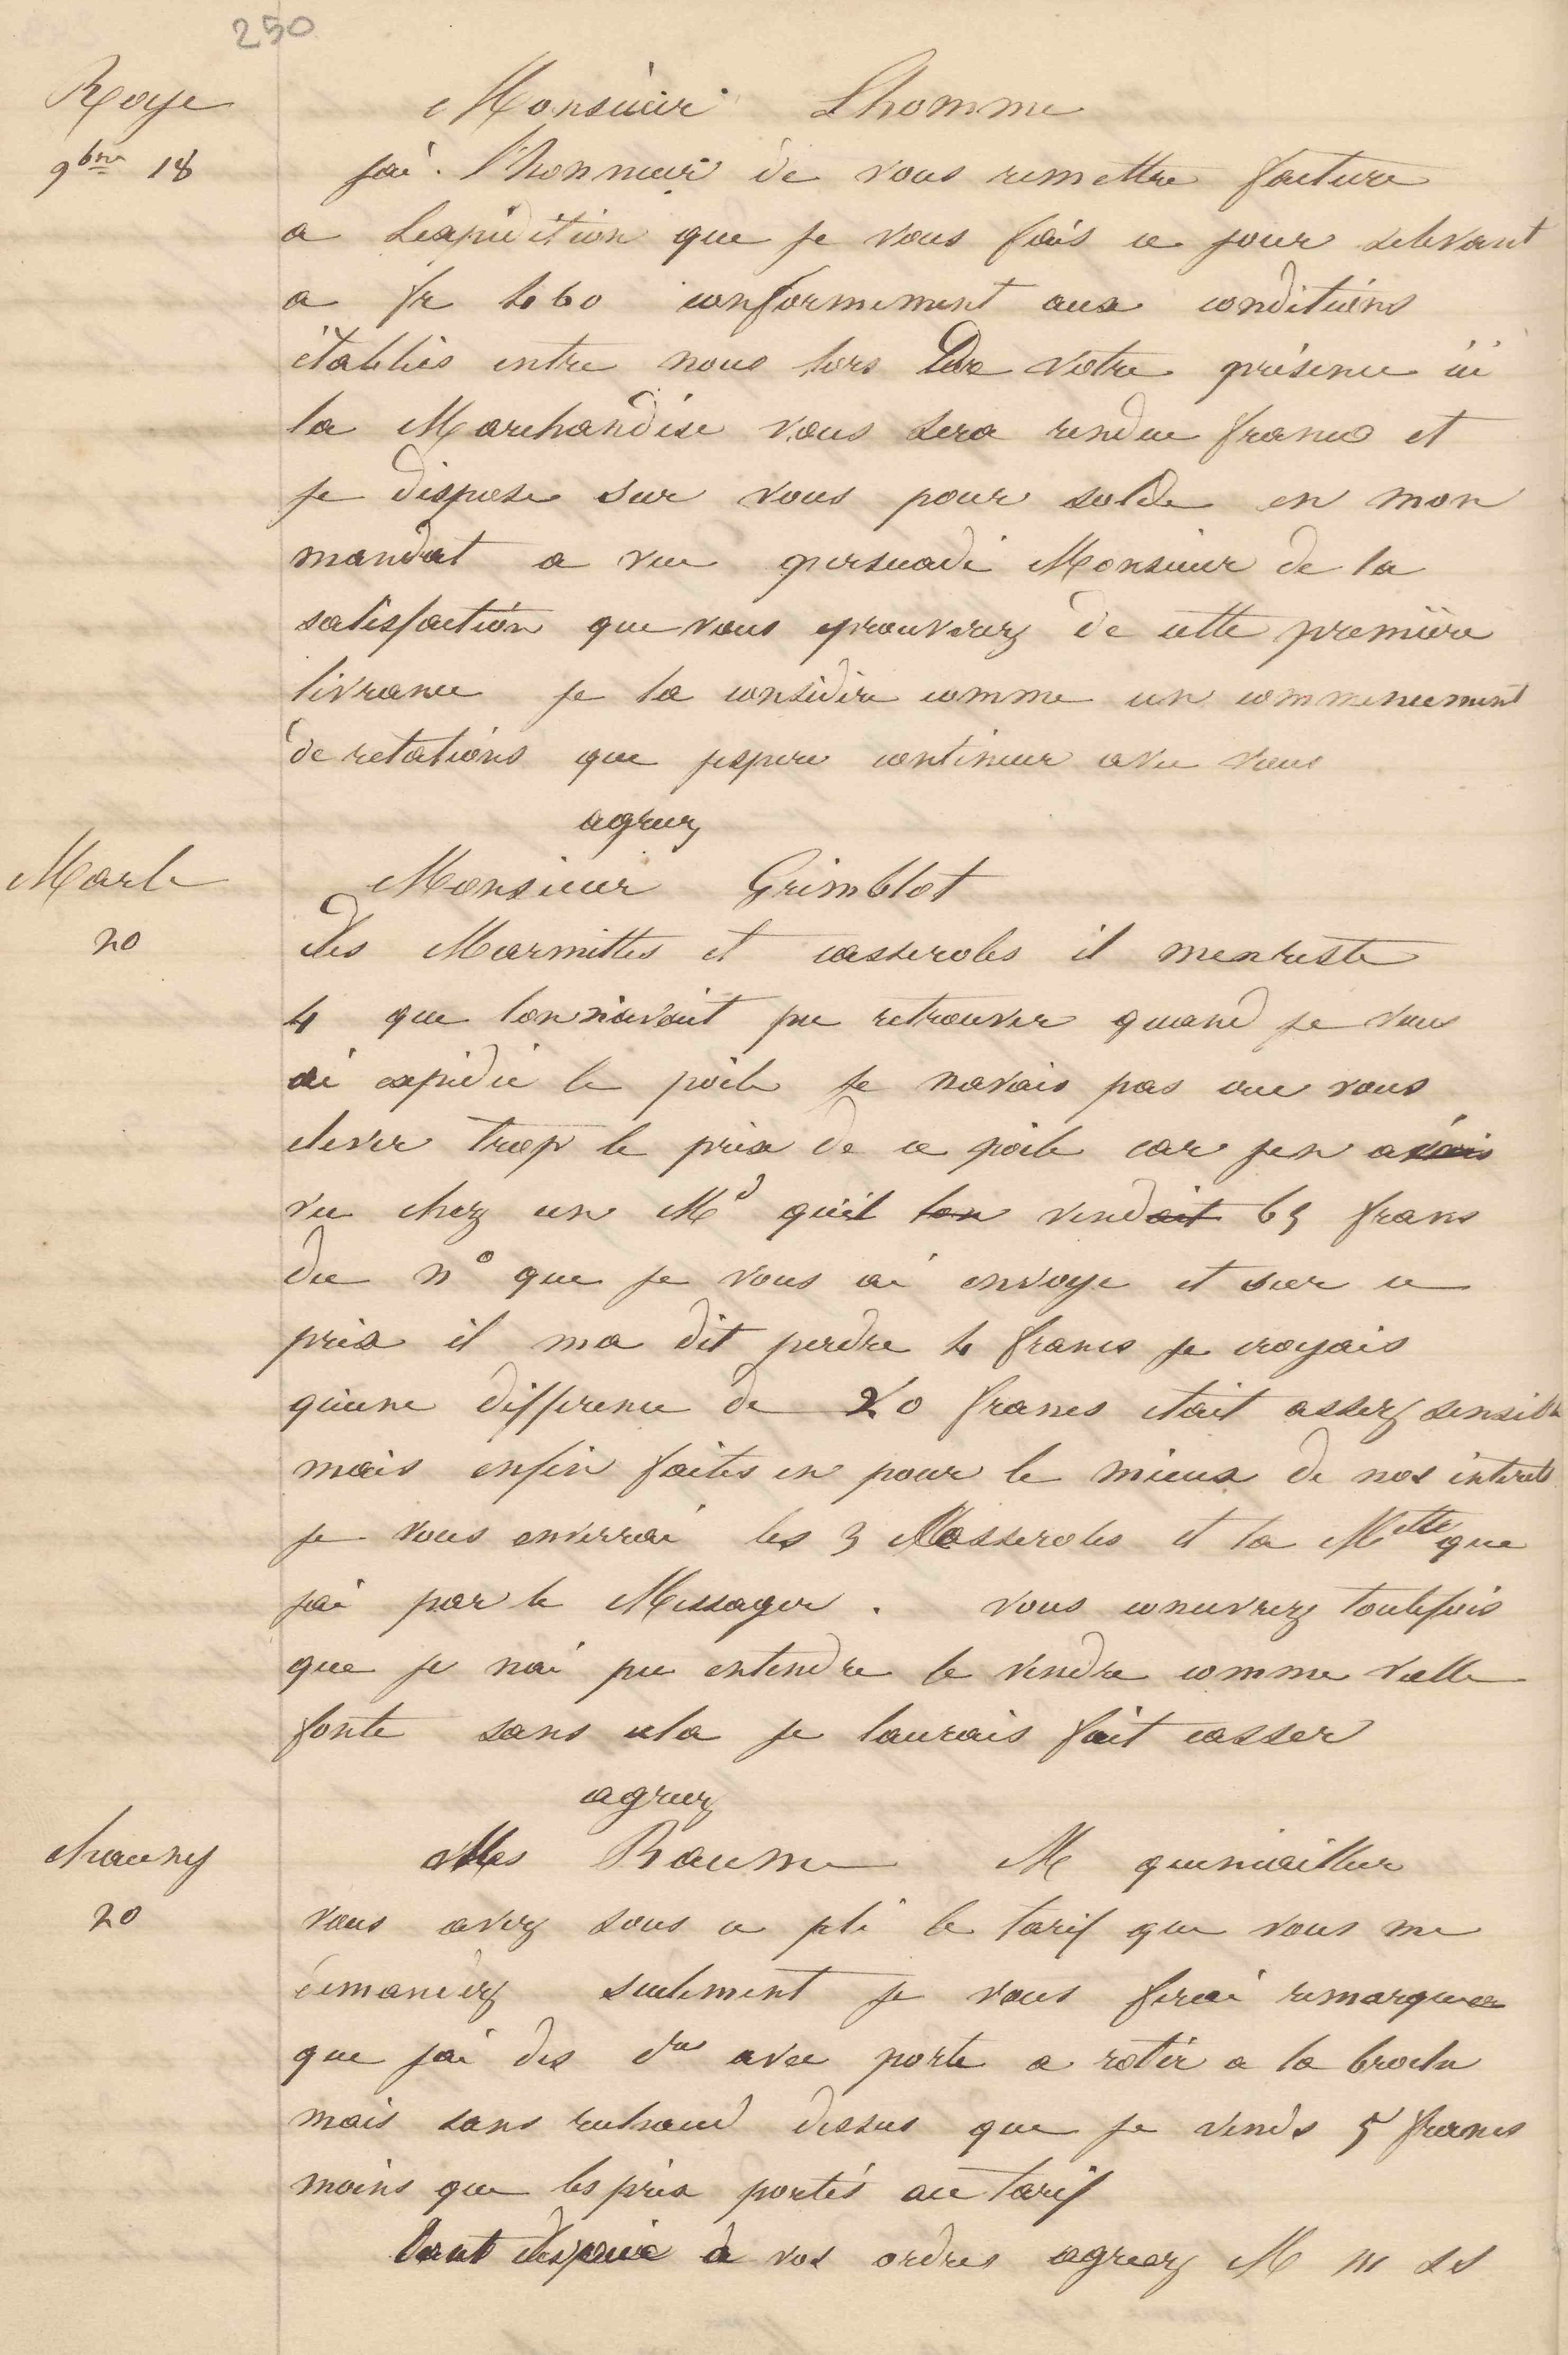 250
Roye
9bre 18
Monsieur Lhomme
jai l'honneur de vous remettre facture
a Lexpedition que je vous fais ce jour selevant
a fr 460 conformement aux conditions
établies entre nous lors De votre présence ici
la Marchandise vous sera rendue franco et
je dispose sur vous pour solde en mon
mandat a vue persuadé Monsieur de la
satisfaction que vous eprouverez de cette première
livrance je la considère comme un commencement
de relations que jespere continuer avec vous
agreez
Marle
20
Monsieur Grimblot
Des Marmittes et casseroles il menreste
4 que lon n'avait pu retrouver quand je vous
ai expédié le poêle je navais pas cru vous
elever trop le prix de ce poile car jen avais
vu chez un Md quil lon vendait 65 francs
du n° que je vous ai envoye et sur ce
prix il ma dit perdre 4 francs je croyais
qu'une difference de 20 francs etait assez sensible
mais enfin faites en pour le mieux de nos interets
je vous enverrai les 3 Casseroles et la Mtte que
jai par le Messager. vous concevrez toutefois
que je nai pu entendre le vendre comme vielle
fonte sans cela je laurais fait casser
agreez
Chauny
20
Mes Baume M quincailler
vous avez sous ce pli le tarif que vous me
demandez seulement je vous ferai remarquer
que jai des avec porte a rotir a la broche
mais sans rechaud dessus que je vends 5 francs
moins que les prix portés au tarif
tout a vos ordres agreez M m ss